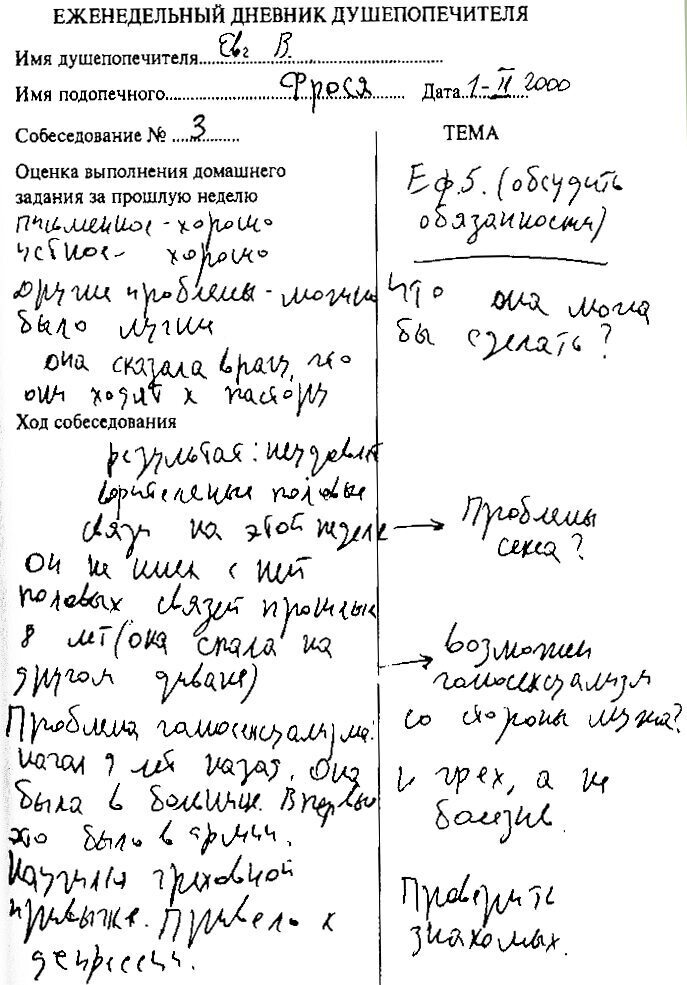 ЕЖЕНЕДЕЛЬНЫЙ ДНЕВНИК ДУШЕПОПЕЧИТЕЛЯ
Имя душепопечителя Евг В.
Имя подопечного Фрося Дата 1-II 2000
Собеседование № 3
Оценка выполнения домашнего
задания за прошлую неделю
письменное - хорошо
устное - хорошо
другие проблемы - можно
было лучше
она сказала врачу, что
они ходят к пастору
Ход собеседования
результат: неудовлет
ворительные половые
связи на этой неделе →
Он не имел с ней
половых связей прошлые
8 лет (она спала на
другом диване)
Проблема гомосексуализма:
начал 9 лет назад. Она
была в больнице. Впервые
это было в армии.
Научился греховной
привычке. Привело к
депрессии.
ТЕМА
Еф.5. (обсудить
обязанности)
Что она могла
бы сделать?
Проблемы
секса?
→ возможен
гомосексуализм
со стороны мужа?
грех, а не
болезнь.
Проверить
знакомых.